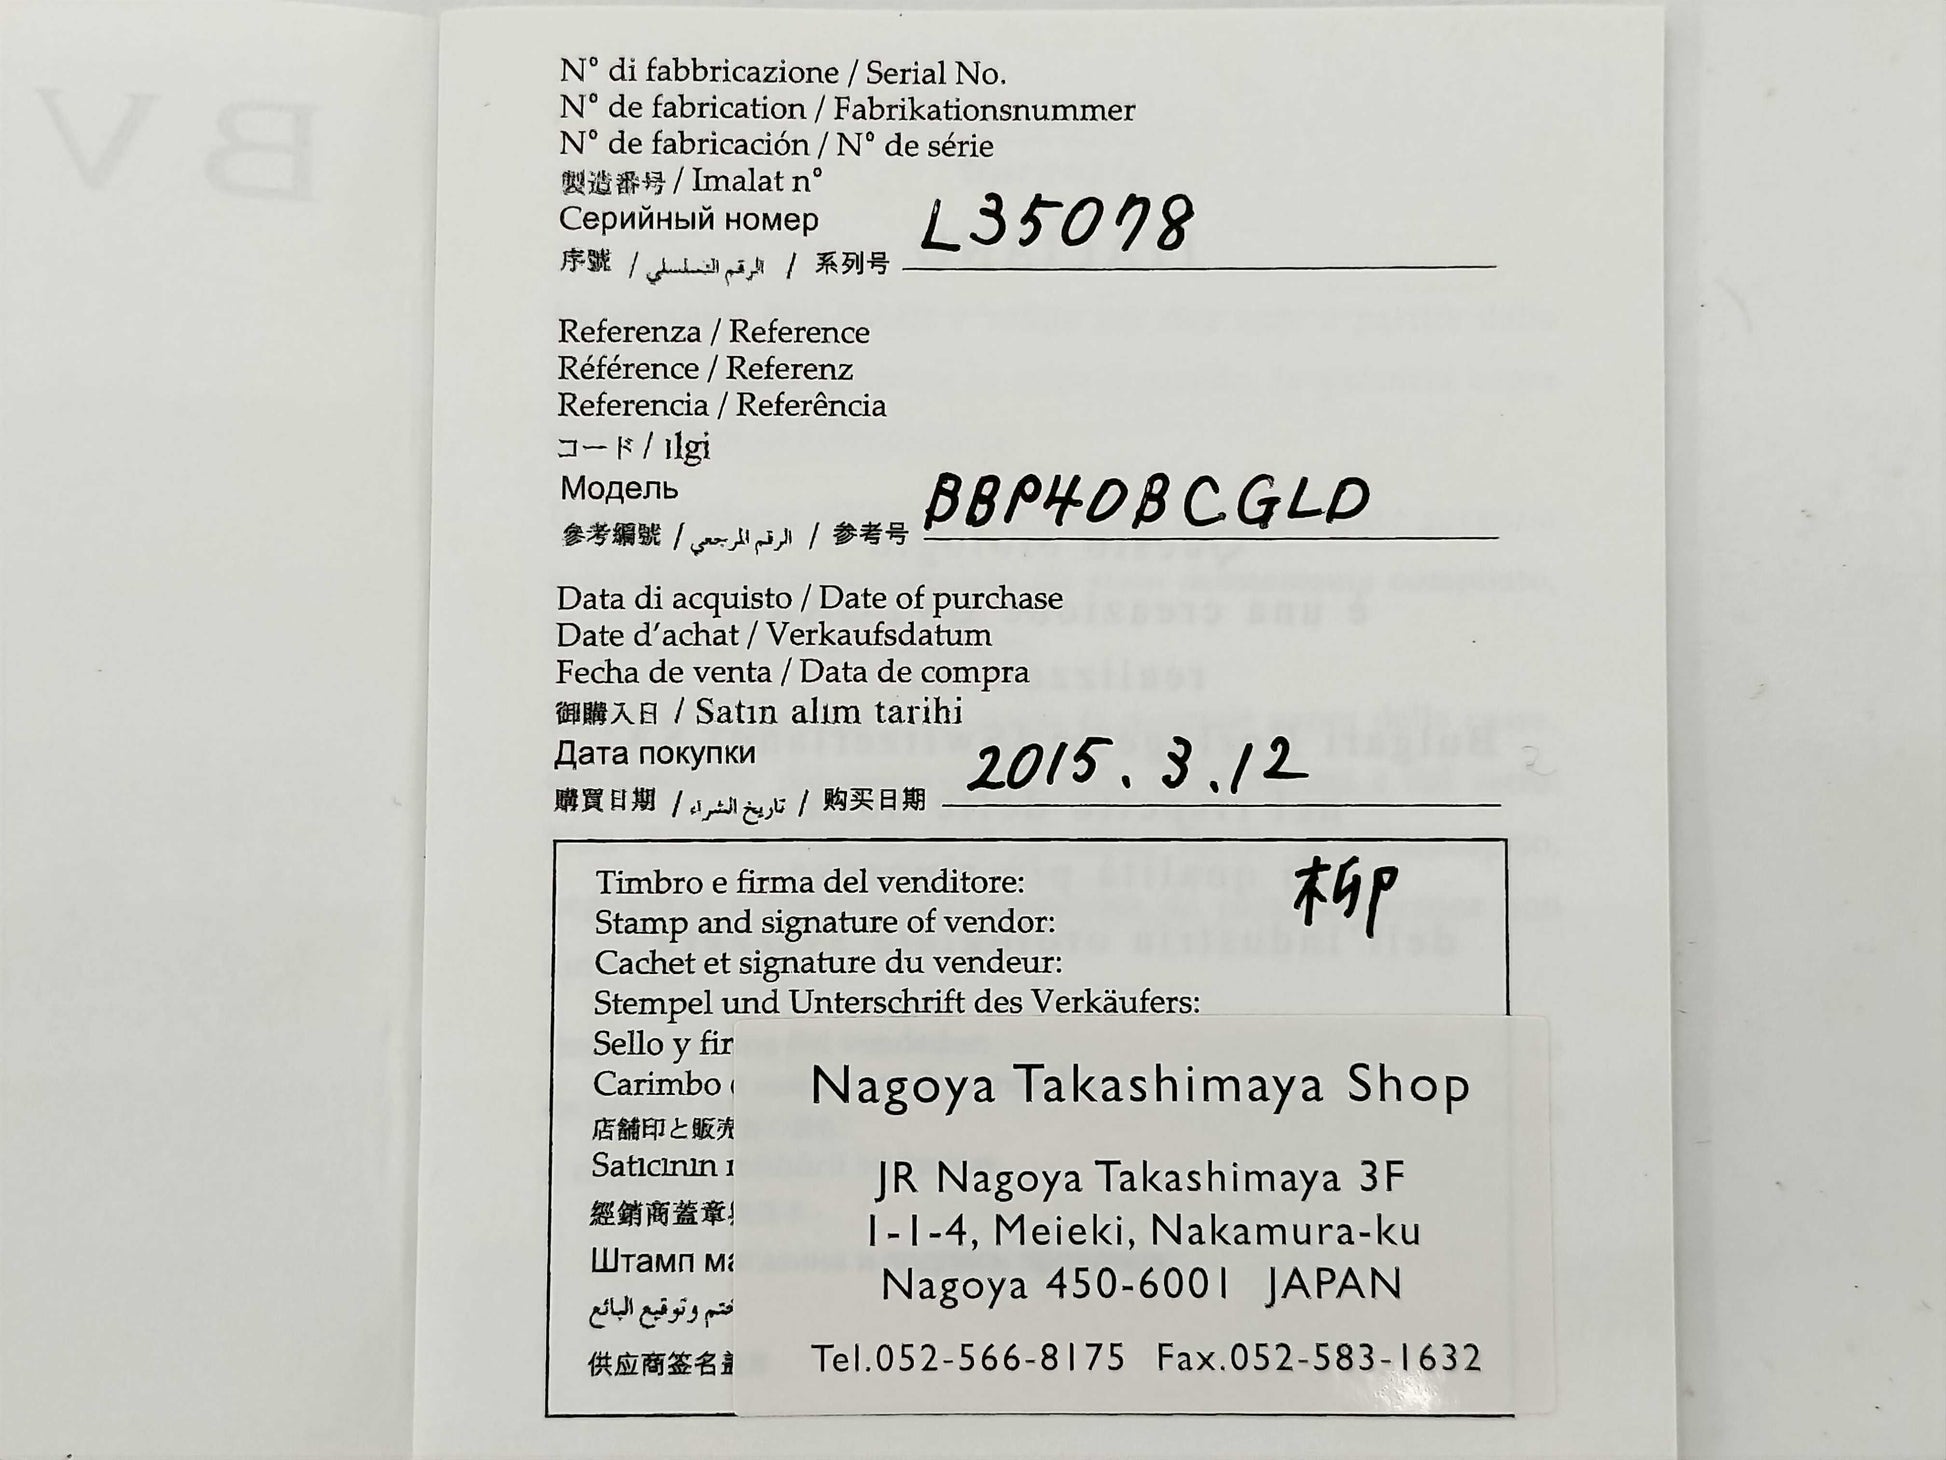 BV
N° di fabbricazione / Serial No.
N° de fabrication / Fabrikationsnummer
N° de fabricación / N° de série
製造番号 / Imalat n°
Серийный номер
序號 / الرقم التسلسلي / 系列号 L35078
Referenza / Reference
Référence / Referenz
Referencia / Referência
コード / ılgi
Модель
參考編號 / الرقم المرجعي / 参考号 BBP40BCGLD
Data di acquisto / Date of purchase
Date d'achat / Verkaufsdatum
Fecha de venta / Data de compra
御購入日 / Satın alım tarihi
Дата покупки
購買日期 / تاريخ الشراء / 购买日期 2015.3.12
Timbro e firma del venditore: 柳
Stamp and signature of vendor:
Cachet et signature du vendeur:
Stempel und Unterschrift des Verkäufers:
Sello y fir
Carimbo
店舗印と販売
Satıcının
經銷商蓋章
Штамп ма
ختم وتوقيع البائع
供应商签名盖
Nagoya Takashimaya Shop
JR Nagoya Takashimaya 3F
1-1-4, Meieki, Nakamura-ku
Nagoya 450-6001 JAPAN
Tel.052-566-8175 Fax.052-583-1632